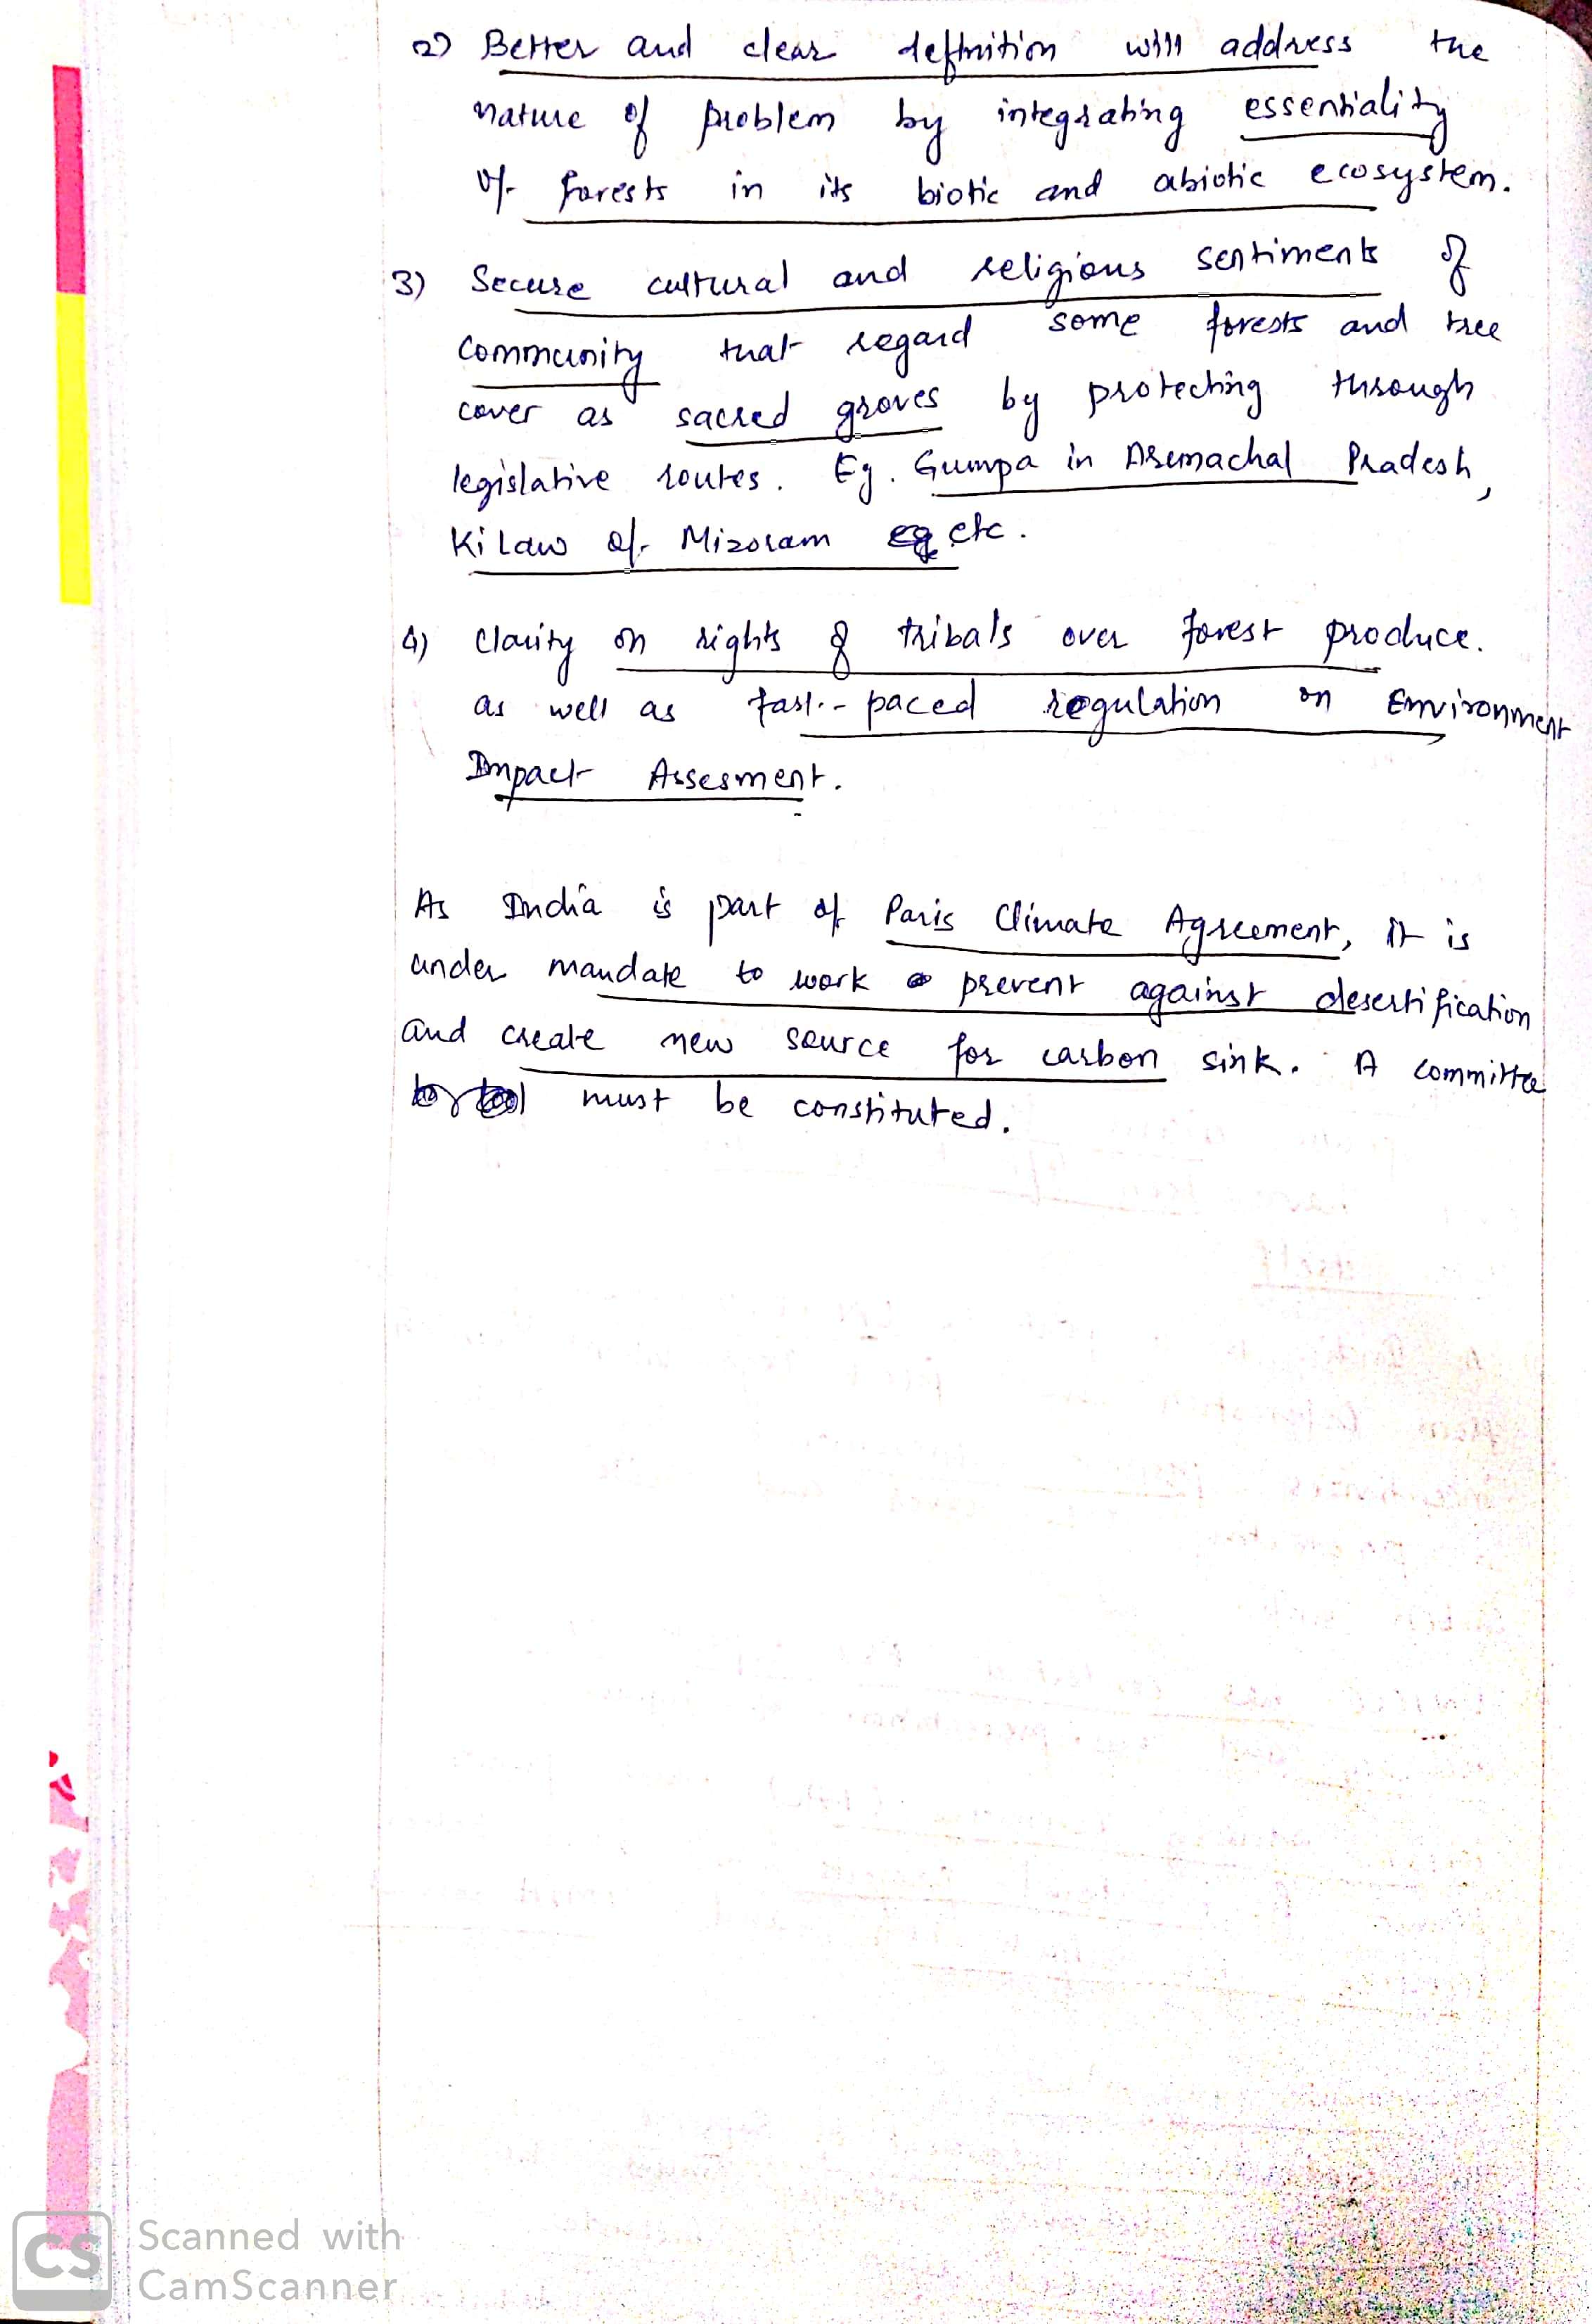 2) Better and clear definition will address the
nature of problem by integrating essentiality
of forests in its biotic and abiotic ecosystem.
3) Secure cultural and religious sentiments of
community that regard some forests and tree
cover as sacred groves by protecting through
legislative routes. Eg. Gumpa in Arunachal Pradesh,
Ki Law of Mizoram etc.
4) Clarity on rights of tribals over forest produce.
as well as fast-paced regulation on Environment
Impact Assesment.
As India is part of Paris Climate Agreement, it is
under mandate to work prevent against desertification
and create new source for carbon sink. A committee
must be constituted.
CS Scanned with
CamScanner